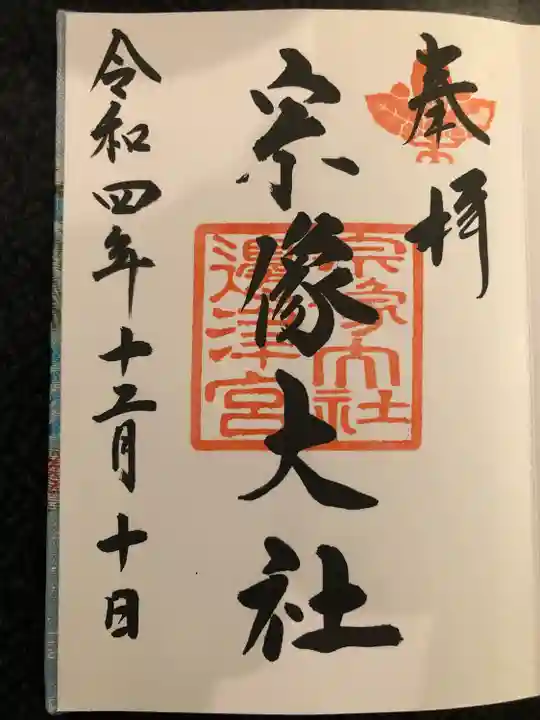 奉拝
宗像大社
宗像大社
邊津宮
令和四年十二月十日